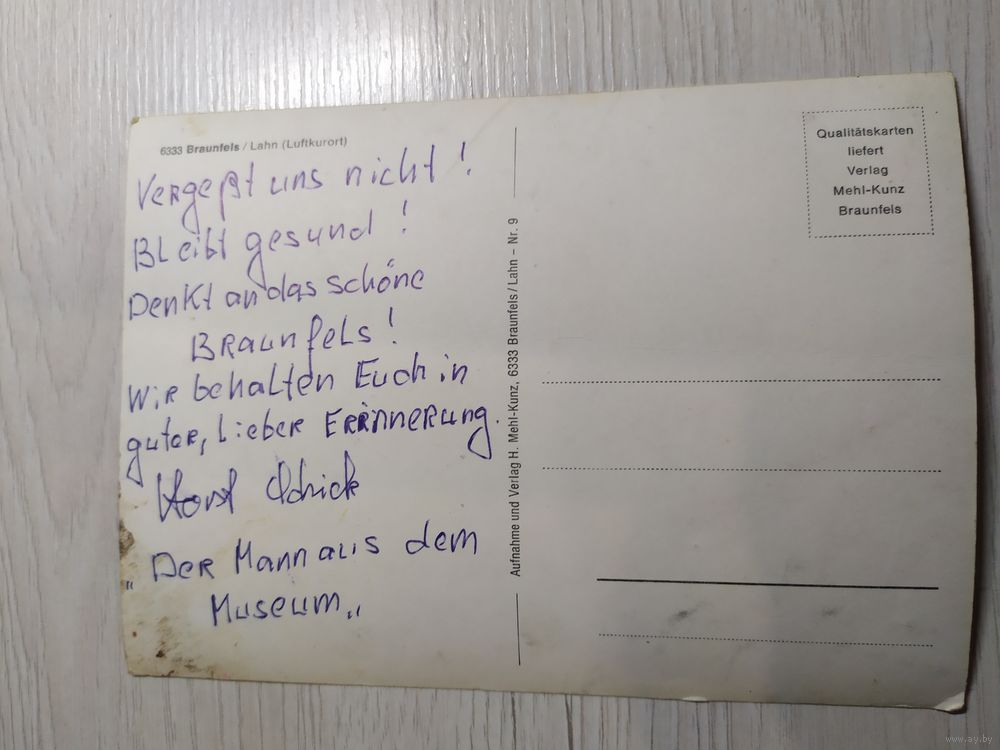 6333 Braunfels / Lahn (Luftkurort)
Vergeßt uns nicht!
Bleibt gesund!
Denkt an das schöne
Braunfels!
Wir behalten Euch in
guter, lieber Errinnerung.
Horst
„Der Mann aus dem
Museum„
Aufnahme und Verlag H. Mehl-Kunz, 6333 Braunfels / Lahn – Nr. 9
Qualitätskarten
liefert
Verlag
Mehl-Kunz
Braunfels
www.ay.by